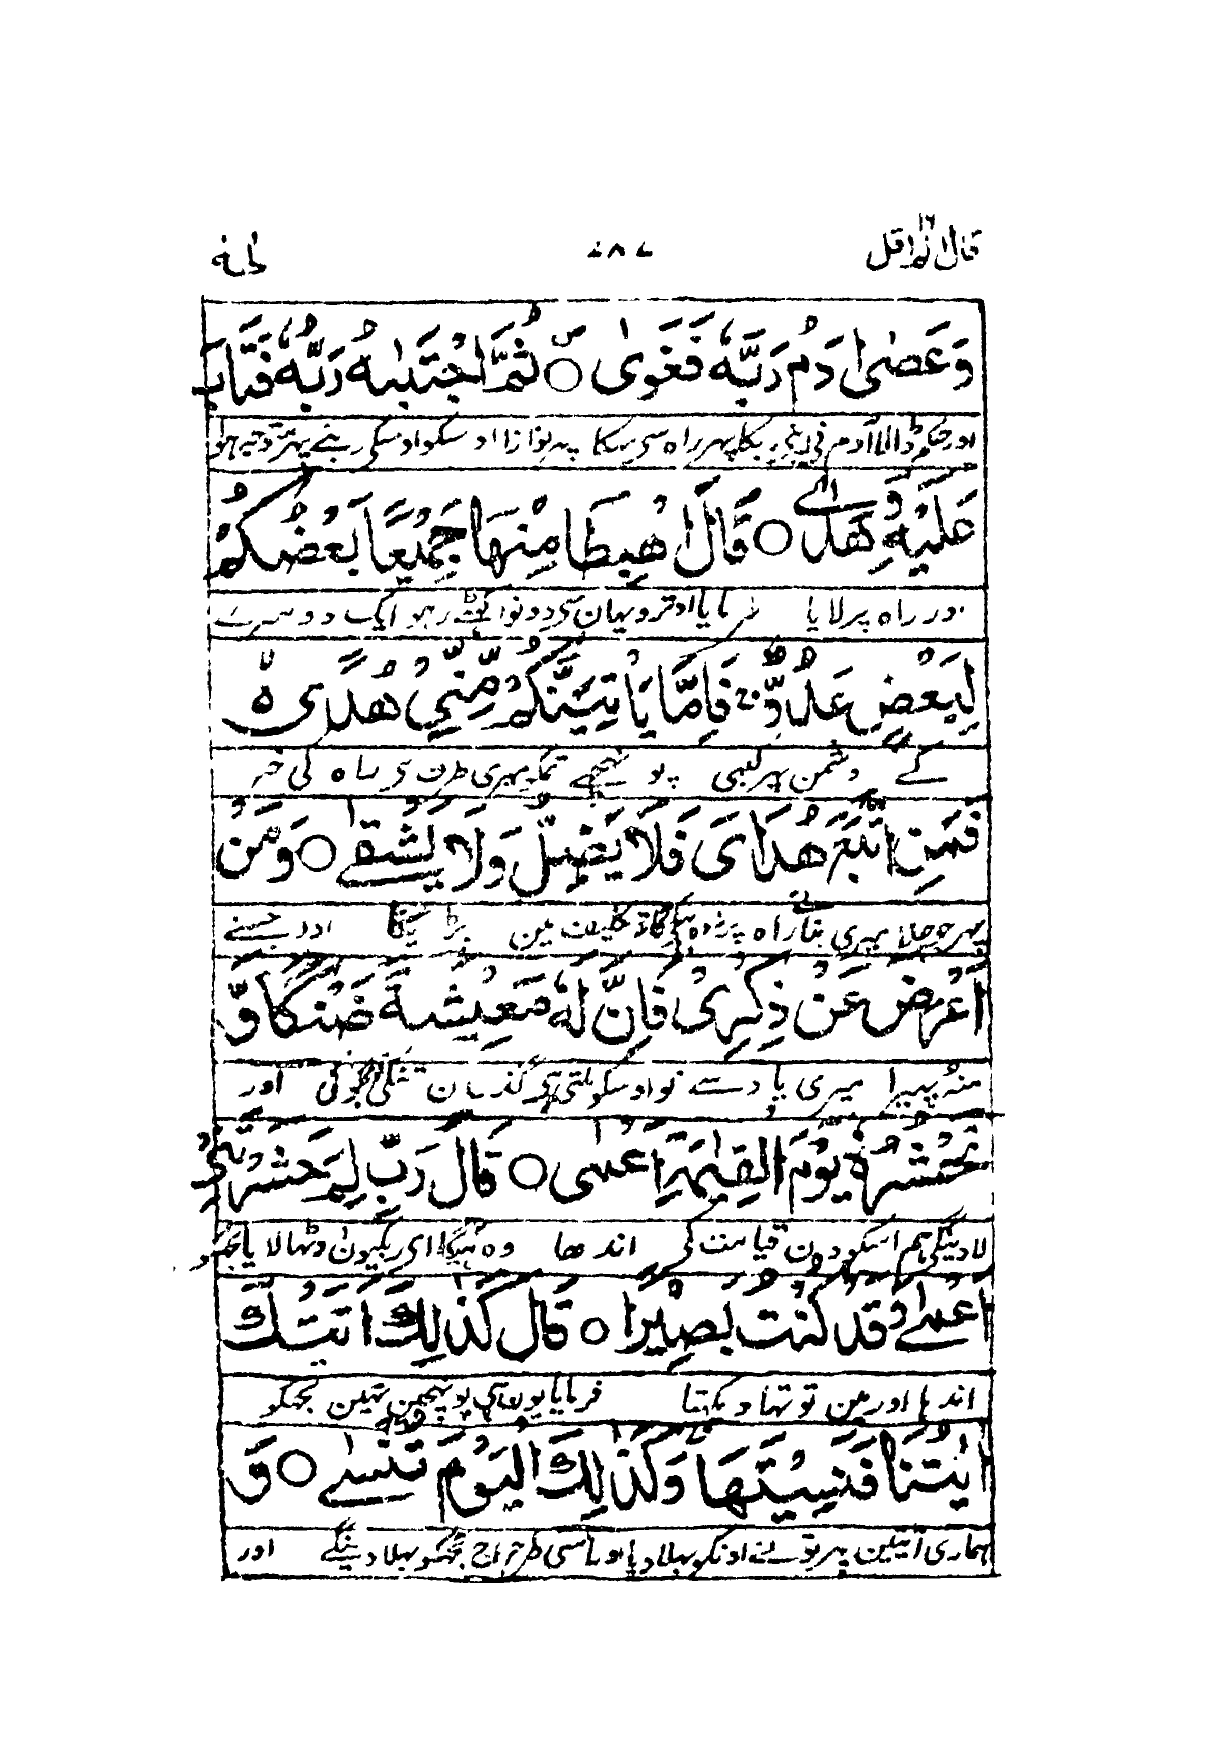 قال الم اقل ١٦ ٤٨٧ طه
وَعَصٰى اٰدَمُ رَبَّهٗ فَغَوٰى ۝ ثُمَّ اجْتَبٰىهُ رَبُّهٗ فَتَابَ
اور حکم ٹالا آدم نی اپنی رب کا پہر راہ سی بہکا پہر نوازا اوسکو اوسکی رب نے پہر متوجہ ہوا
عَلَيْهِ وَهَدٰى ۝ قَالَ اهْبِطَا مِنْهَا جَمِيْعًا بَعْضُكُمْ
اور راہ پر لایا فرمایا اوترو یہان سی دونو اکٹھے رہو ایک دوسرے
لِبَعْضٍ عَدُوٌّ ۚ فَاِمَّا يَاْتِيَنَّكُمْ مِّنِّيْ هُدًى ۙ
کے دشمن پہر کبہی پہونچے تمکو میری طرف سی راہ کی خبر
فَمَنِ اتَّبَعَ هُدَايَ فَلَا يَضِلُّ وَلَا يَشْقٰى ۝ وَمَنْ
پہر جو چلا میری بتائی راہ پر نہ وہ بہکیگا نہ تکلیف مین پڑیگا اور جسنے
اَعْرَضَ عَنْ ذِكْرِيْ فَاِنَّ لَهٗ مَعِيْشَةً ضَنْكًا وَّ
منہ پہیرا میری یاد سے تو اوسکو ملتی ہی گذران تنگی کی اور
نَحْشُرُهٗ يَوْمَ الْقِيٰمَةِ اَعْمٰى ۝ قَالَ رَبِّ لِمَ حَشَرْتَنِيْ
لاوینگی ہم اسکو دن قیامت کی اندھا وہ کہیگا ای رب کیون اوٹہا لایا تو مجھکو
اَعْمٰى وَقَدْ كُنْتُ بَصِيْرًا ۝ قَالَ كَذٰلِكَ اَتَتْكَ
اندہا اور مین تو تہا دیکہتا فرمایا یون ہی پہونچین تہین تجھکو
اٰيٰتُنَا فَنَسِيْتَهَا وَكَذٰلِكَ الْيَوْمَ تُنْسٰى ۝ وَ
ہماری آیتین پہر تو نے اونکو بہلا دیا اور اسی طرح آج تجھکو بہلا دینگے اور